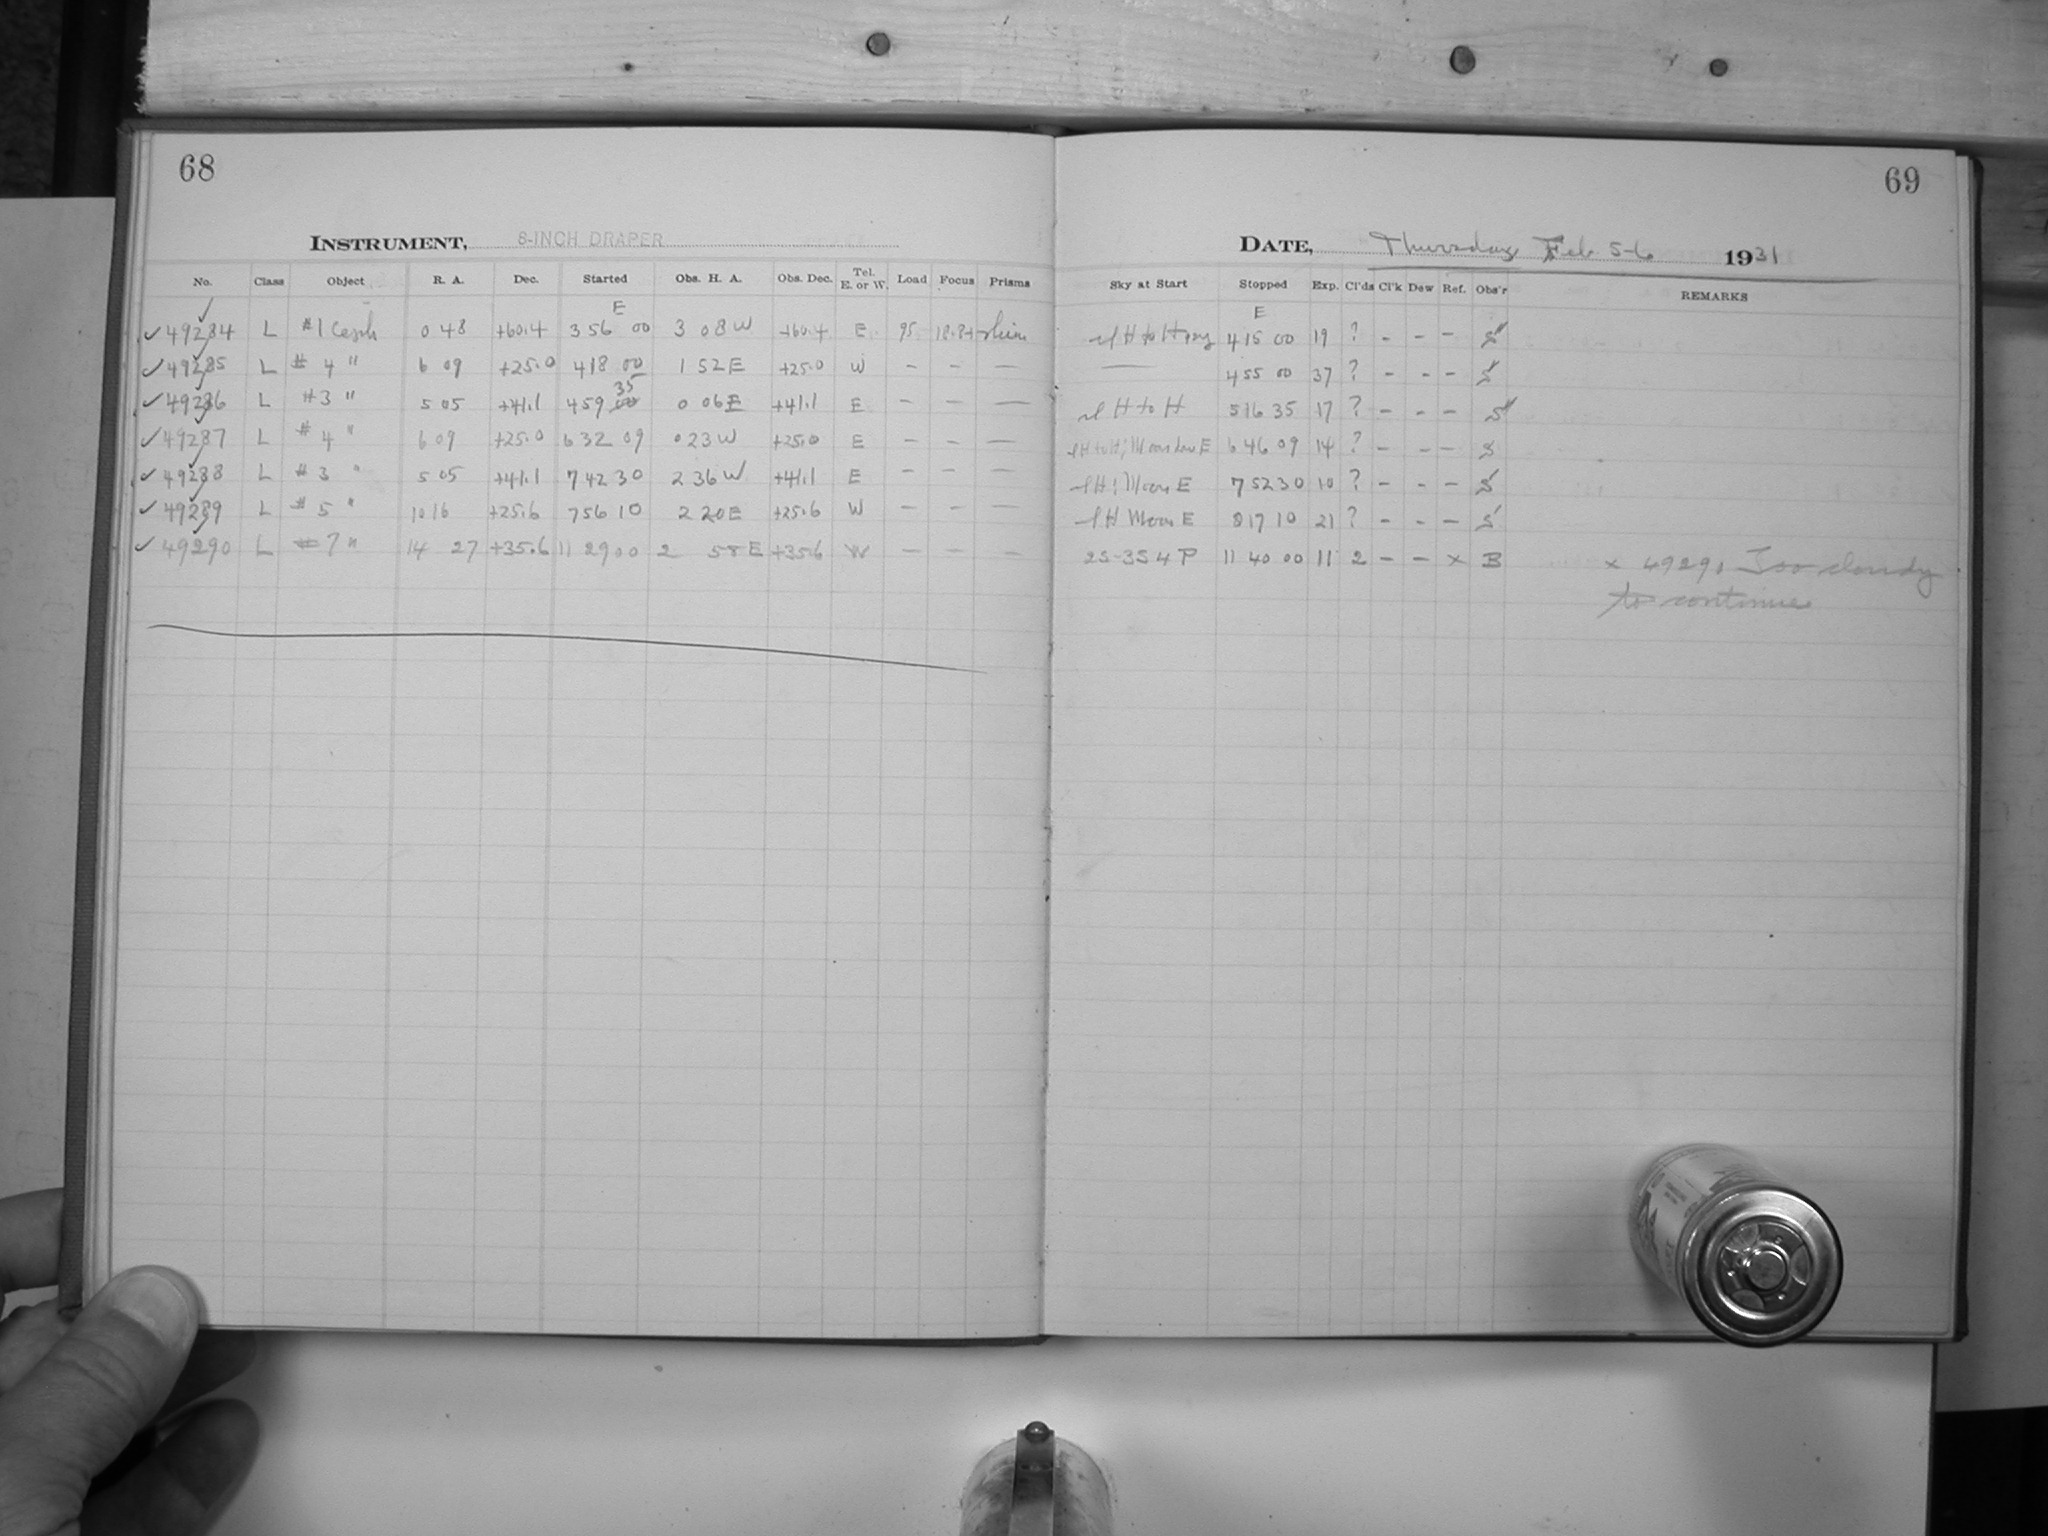 68
INSTRUMENT, 8-INCH DRAPER
No. Class Object R. A. Dec. Started Obs. H. A. Obs. Dec. Tel. E. or W. Load Focus Prisms
E
49284 L #1 Ceph 0 48 +60.4 3 56 00 3 08 W +60.4 E 95
49285 L # 4 " 6 09 +25.0 4 18 00 1 52 E +25.0 W – – –
49286 L #3 " 5 05 +41.1 4 59 35 0 06 E +41.1 E – – –
49287 L # 4 " 6 09 +25.0 6 32 09 0 23 W +25.0 E – – –
49288 L # 3 " 5 05 +41.1 7 42 30 2 36 W +41.1 E – – –
49289 L # 5 " 10 16 +25.6 7 56 10 2 20 E +25.6 W – – –
49290 L # 7 " 14 27 +35.6 11 29 00 2 58 E +35.6 W – – –
69
DATE, Thursday Feb 5-6 1931
Sky at Start Stopped Exp. Cl'ds Cl'k Dew Ref. Obs'r REMARKS
E
H to H 4 15 00 19 ? – – – S
4 55 00 37 ? – – – S
H to H 5 16 35 17 ? – – – S
H to H; Moon low E 6 46 09 14 ? – – – S
H; Moon E 7 52 30 10 ? – – – S
H Moon E 8 17 10 21 ? – – – S
2S-3S 4 P 11 40 00 11 2 – – x B x 49291 Too cloudy
to continue